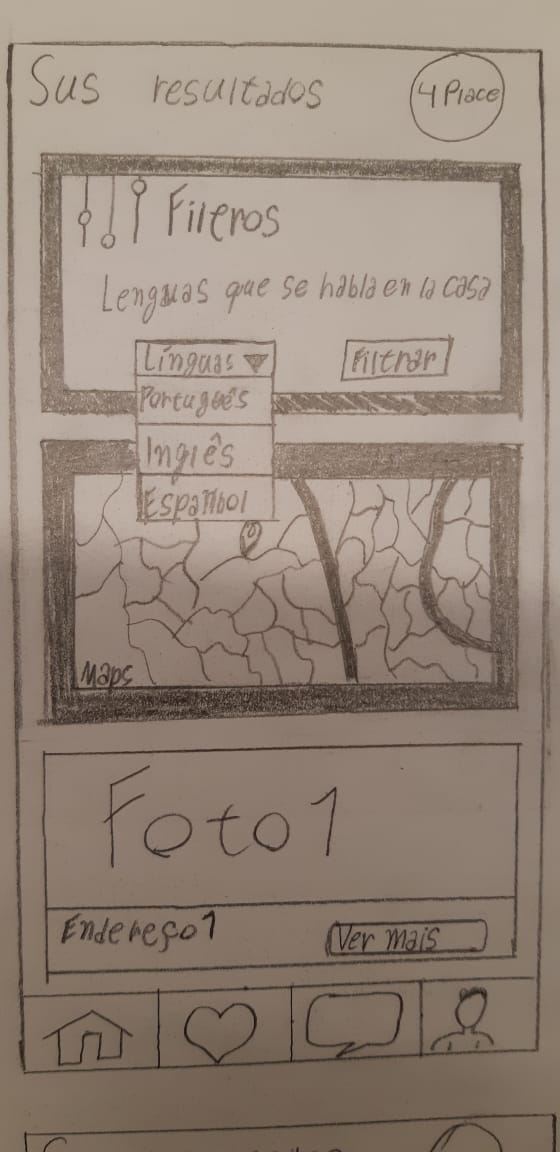 Sus resultados
4 Place
Filtros
Lenguas que se habla en la casa
Línguas
Filtrar
Português
Inglês
Espanhol
Maps
Foto 1
Endereço 1
Ver mais